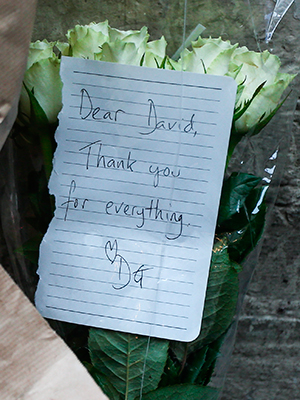 Dear David,
Thank you
for everything.
DG